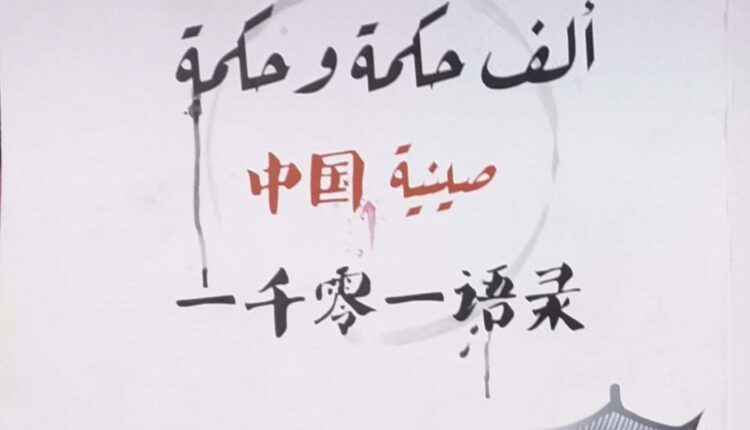 ألف حكمة و حكمة
中国 صينية
一千零一语录